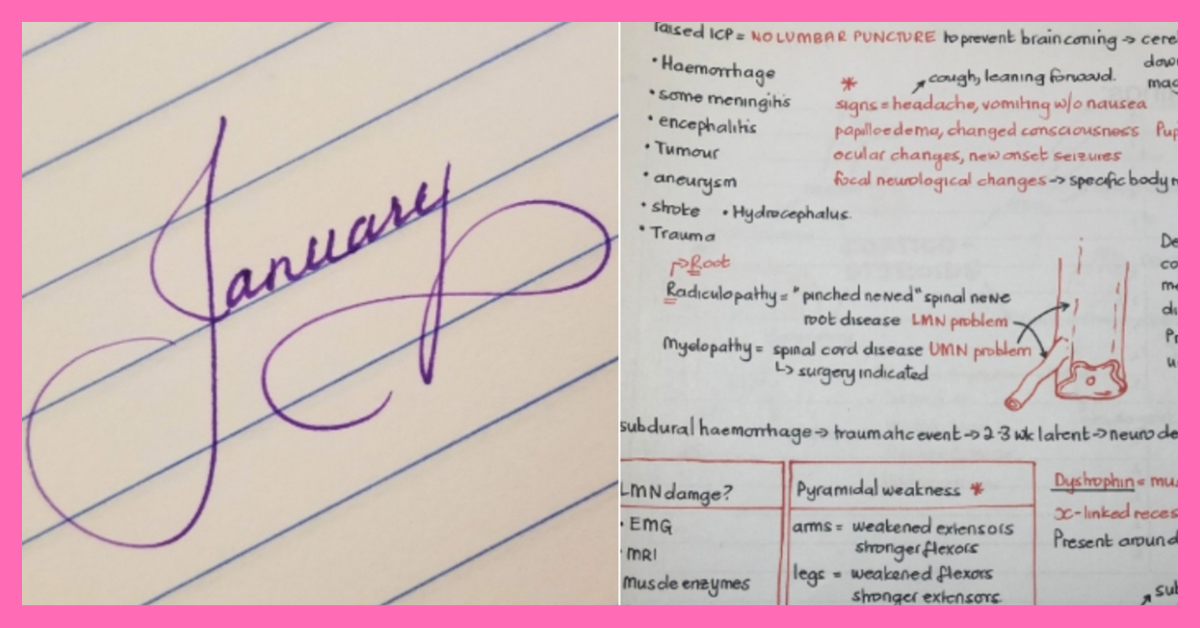 January
raised ICP = NO LUMBAR PUNCTURE to prevent brain coning → cere
dow
mac
• Haemorrhage
• some meningitis
• encephalitis
• Tumour
• aneurysm
• stroke • Hydrocephalus.
• Trauma
* cough, leaning forward.
signs = headache, vomiting w/o nausea
papilloedema, changed consciousness Pup
ocular changes, new onset seizures
focal neurological changes → specific body
Root
Radiculopathy = "pinched nerved" spinal nerve
root disease LMN problem
Myelopathy = spinal cord disease UMN problem
↳ surgery indicated
De
co
m
di
Pr
u
subdural haemorrhage → traumatic event → 2-3 wk latent → neuro de
LMN damge?
• EMG
• MRI
muscle enzymes
Pyramidal weakness *
arms = weakened extensors
stronger flexors
legs = weakened flexors
stronger extensors
Dystrophin = mu
x-linked reces
Present around
sub